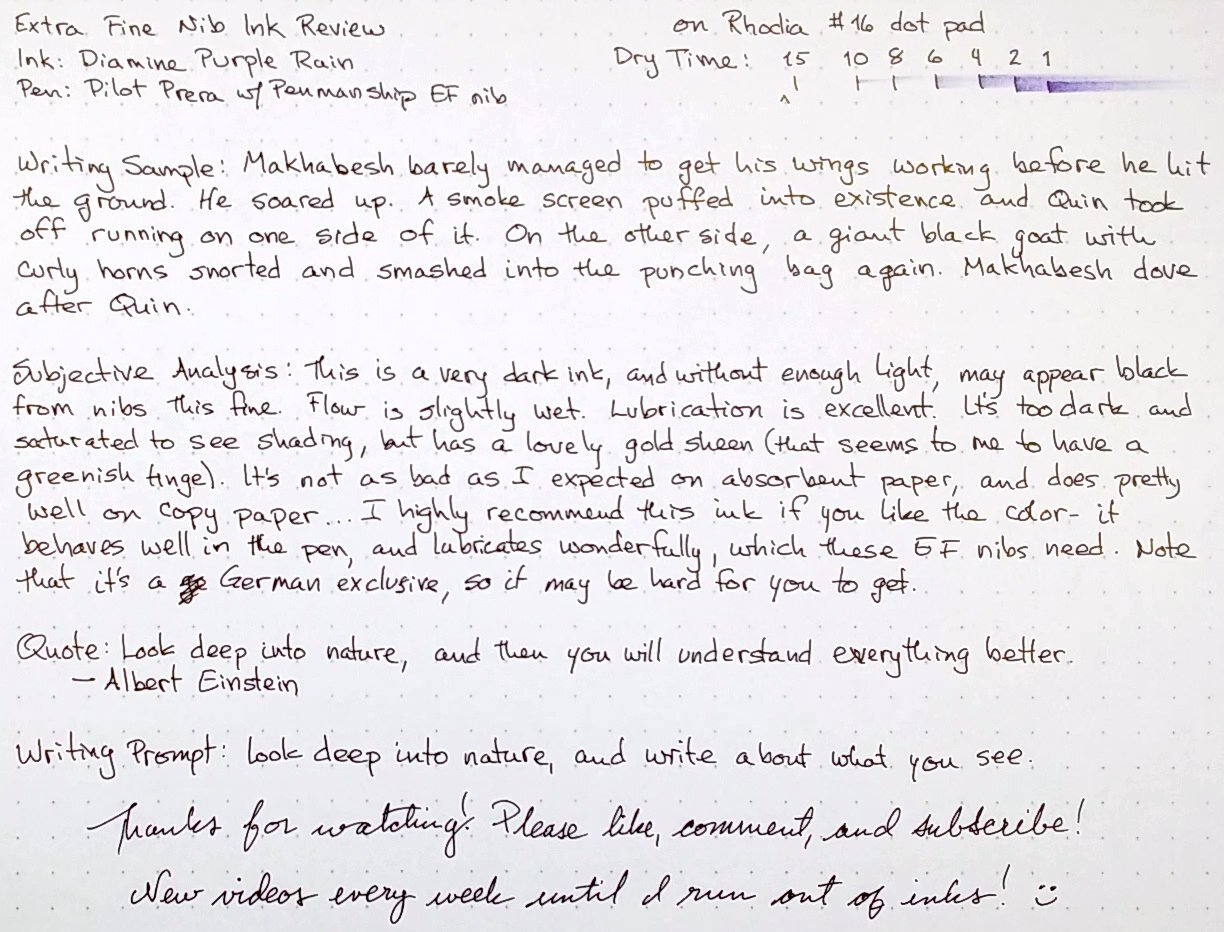 Extra Fine Nib Ink Review
on Rhodia #16 dot pad
Ink: Diamine Purple Rain
Dry Time: 15 10 8 6 4 2 1
Pen: Pilot Prera w/ Penmanship EF nib
Writing Sample: Makhabesh barely managed to get his wings working before he hit
the ground. He soared up. A smoke screen puffed into existence and Quin took
off running on one side of it. On the other side, a giant black goat with
curly horns snorted and smashed into the punching bag again. Makhabesh dove
after Quin.
Subjective Analysis: This is a very dark ink, and without enough light, may appear black
from nibs this fine. Flow is slightly wet. Lubrication is excellent. It's too dark and
saturated to see shading, but has a lovely gold sheen (that seems to me to have a
greenish tinge). It's not as bad as I expected on absorbent paper, and does pretty
well on copy paper... I highly recommend this ink if you like the color- it
behaves well in the pen, and lubricates wonderfully, which these EF nibs need. Note
that it's a German exclusive, so it may be hard for you to get.
Quote: Look deep into nature, and then you will understand everything better.
- Albert Einstein
Writing Prompt: Look deep into nature, and write about what you see.
Thanks for watching! Please like, comment, and subscribe!
New videos every week until I run out of inks! :)